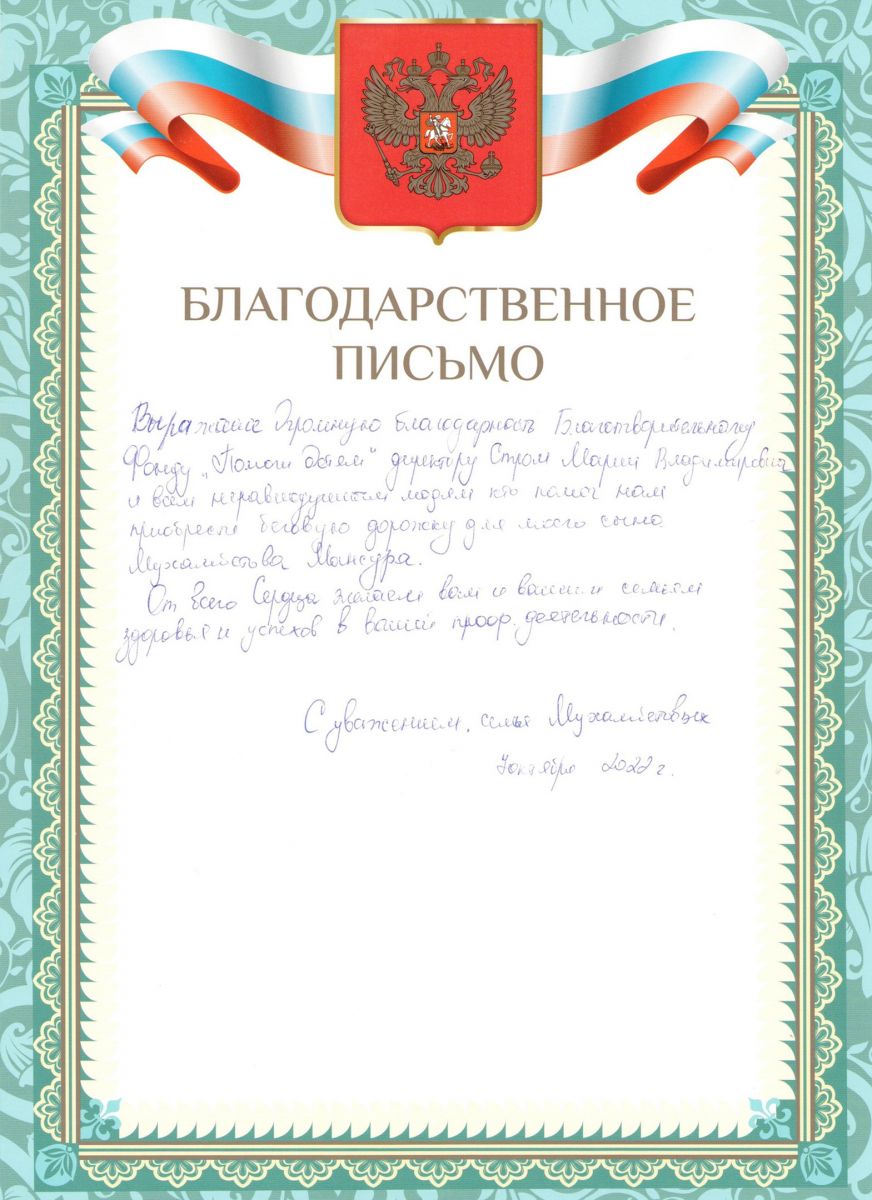 БЛАГОДАРСТВЕННОЕ
ПИСЬМО
Выражаем Огромную благодарность Благотворительному
Фонду „Помоги детям" директору Стром Марии Владимировне
и всем неравнодушным людям кто помог нам
приобрести беговую дорожку для моего сына
Мухаметова Мансура.
От всего Сердца желаем вам и вашим семьям
здоровья и успехов в вашей проф. деятельности.
С уважением, семья
октября 2022 г.